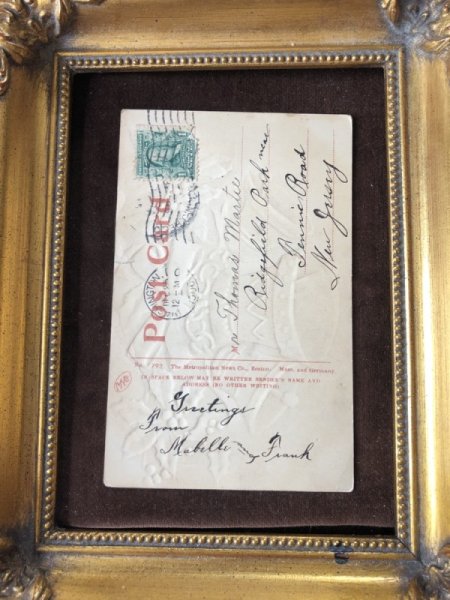 Post Card
Mr Thomas Martie
Ridgefield Park New
Tennie Road
New Jersy
INGTON
12 - M
No. 792. The Metropolitan News Co., Boston, Mass. and Germany
IN SPACE BELOW MAY BE WRITTEN SENDER'S NAME AND
ADDRESS (NO OTHER WRITING)
Greetings
From
Mabelle and Frank